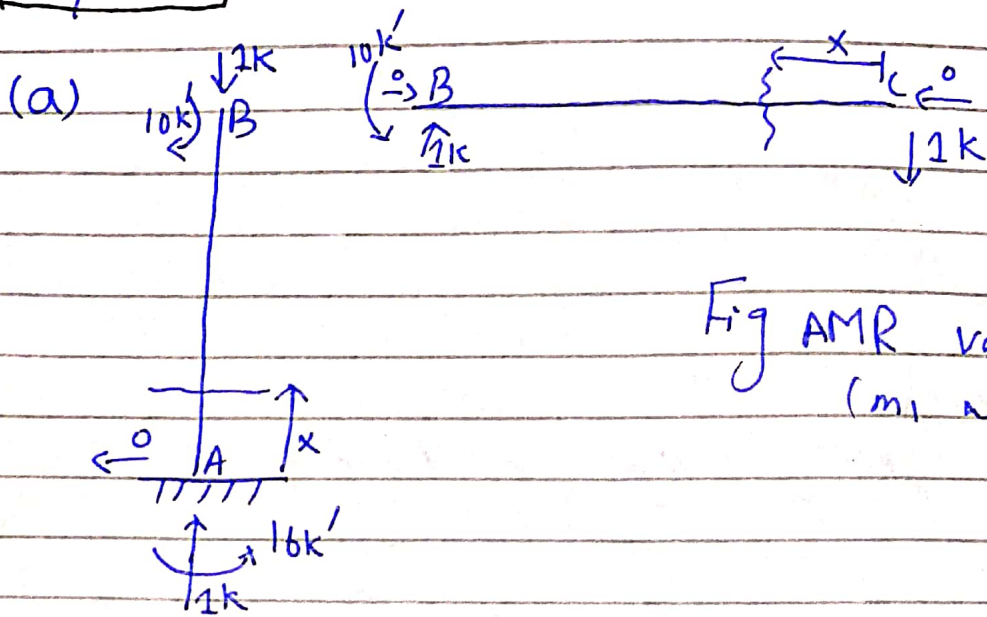 (a)
1k
10k'
B
10k'
0
B
1k
x
C
0
1k
Fig AMR
(m,
0
A
x
1k